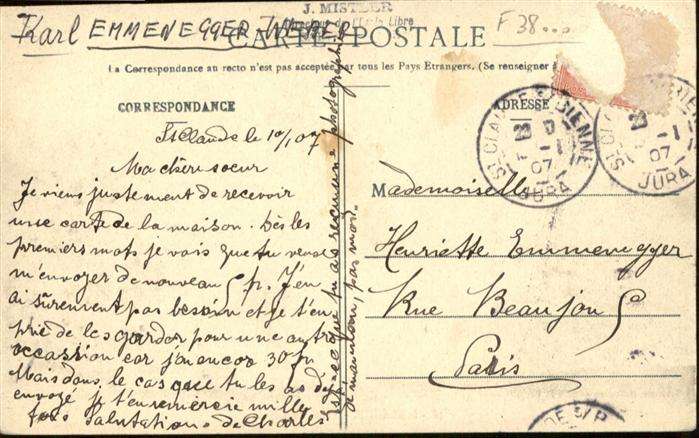 J. MISTLER
Karl EMMENEGGER
CARTE POSTALE
F 38...
La Correspondance au recto n'est pas acceptée par tous les Pays Etrangers. (Se renseigner à
CORRESPONDANCE
ADRESSE
St Claude le 10/1 07
Ma chère soeur
Je viens justement de recevoir
une carte de la maison. Dès les
premiers mots je vois que tu veux
m'envoyer de nouveau 5 fr. J'en
ai sûrement pas besoin et je t'en
prie de les garder pour une autre
occassion car j'ai encor 30 fr
Mais dans le cas que tu les as déjà
envoyé je t'en remercie mille
fois Salutations de Charles
Est-ce que tu as reçu une photographie
de maman, pas moi.
Mademoiselle
Henriette Emmenegger
Rue Beaujon 5
Paris
ST-CLAUDE
JURA
07
JURA
07